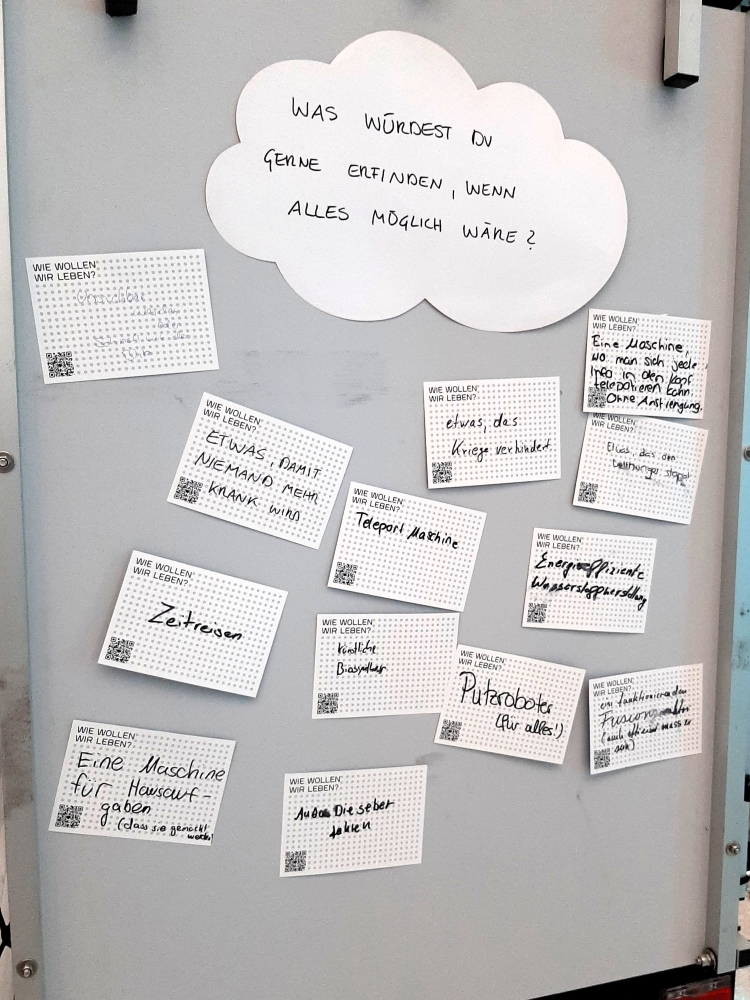 WAS WÜRDEST DU
GERNE ERFINDEN, WENN
ALLES MÖGLICH WÄRE?
WIE WOLLEN
WIR LEBEN?
WIE WOLLEN
WIR LEBEN?
Eine Maschine,
wo man sich jede
Info in den Kopf
teleportieren kann
Ohne Anstrengung.
WIE WOLLEN
WIR LEBEN?
etwas, das
Kriege verhindert
WIE WOLLEN
WIR LEBEN?
ETWAS, DAMIT
NIEMAND MEHR
KRANK WIRD
WIE WOLLEN
WIR LEBEN?
Etwas, das den
Welthunger stoppt
WIE WOLLEN
WIR LEBEN?
Teleport Maschine
WIE WOLLEN
WIR LEBEN?
Energieeffiziente
Wasserstoffherstellung
WIE WOLLEN
WIR LEBEN?
Zeitreisen
WIE WOLLEN
WIR LEBEN?
WIE WOLLEN
WIR LEBEN?
Putzroboter
(für alles!)
WIE WOLLEN
WIR LEBEN?
ein funktionierender
(auch effizient muss er
sein)
WIE WOLLEN
WIR LEBEN?
Eine Maschine
für Hausauf-
gaben
(dass sie gemacht
werden
WIE WOLLEN
WIR LEBEN?
Die selber